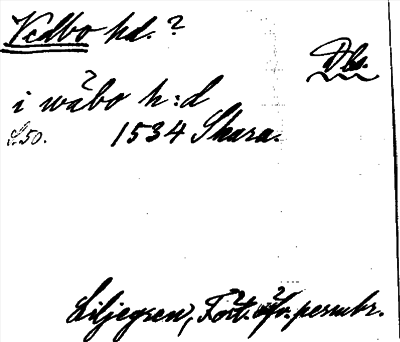 Vedbo hd. ?
Dls.
i wåbo h:d
S.50. 1534 Skara.
Liljegren, Fört. öfv. permbr.